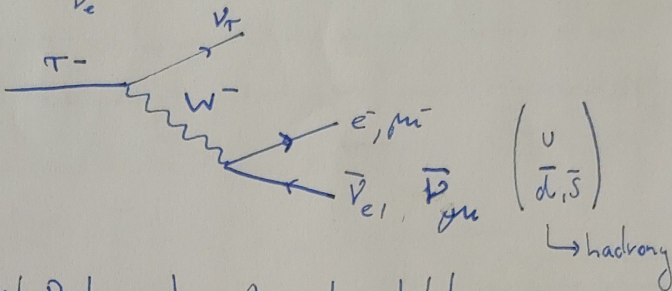 νe
ντ
τ-
W-
e-, μ-
ν̄e, ν̄μ
u
d̄, s̄
hadrony